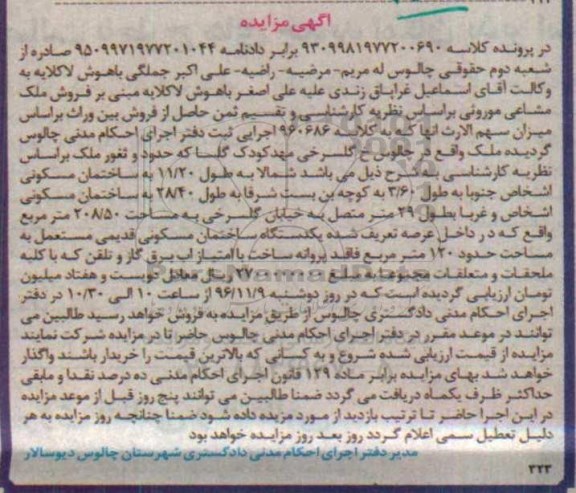 آگهی مزایده
در پرونده کلاسه ۹۳۰۹۹۸۱۹۷۷۲۰۰۶۹۰ برابر دادنامه ۹۵۰۹۹۷۱۹۷۷۲۰۱۰۴۴ صادره از
شعبه دوم حقوقی چالوس له مریم- مرضیه- راضیه- علی اکبر جملگی باهوش لاکلایه به
وکالت آقای اسماعیل غرایاق زندی علیه علی اصغر باهوش لاکلایه مبنی بر فروش ملک
مشاعی موروثی براساس نظریه کارشناسی و تقسیم ثمن حاصل از فروش بین وراث براساس
میزان سهم الارث آنها که به کلاسه ۹۶۰۶۸۶ اجرایی ثبت دفتر اجرای احکام مدنی چالوس
گردیده ملک واقع در چالوس خ گلسرخی مهدکودک گلسا که حدود و ثغور ملک براساس
نظریه کارشناسی به شرح ذیل می باشد شمالا به طول ۱۱/۲۰ به ساختمان مسکونی
اشخاص جنوبا به طول ۳/۶۰ به کوچه بن بست شرقا به طول ۲۸/۴۰ به ساختمان مسکونی
اشخاص و غربا بطول ۲۹ متر متصل به خیابان گلسرخی به مساحت ۲۰۸/۵۰ متر مربع
واقع که در داخل عرصه تعریف شده یکدستگاه ساختمان مسکونی قدیمی مستعمل به
مساحت حدود ۱۲۰ متر مربع فاقد پروانه ساخت با امتیاز آب برق گاز و تلفن که با کلیه
ملحقات و متعلقات مجموعا به مبلغ ریال معادل دویست و هفتاد میلیون
تومان ارزیابی گردیده است که در روز دوشنبه ۹۶/۱۱/۹ از ساعت ۱۰ الی ۱۰/۳۰ در دفتر
اجرای احکام مدنی دادگستری چالوس از طریق مزایده به فروش خواهد رسید طالبین می
توانند در موعد مقرر در دفتر اجرای احکام مدنی چالوس حاضر تا در مزایده شرکت نمایند
مزایده از قیمت ارزیابی شده شروع و به کسانی که بالاترین قیمت را خریدار باشند واگذار
خواهد شد بهای مزایده برابر ماده ۱۲۹ قانون اجرای احکام مدنی ده درصد نقدا و مابقی
حداکثر ظرف یکماه دریافت می گردد ضمنا طالبین می توانند پنج روز قبل از موعد مزایده
در این اجرا حاضر تا ترتیب بازدید از مورد مزیده داده شود ضمنا چنانچه روز مزایده به هر
دلیل تعطیل رسمی اعلام گردد روز بعد روز مزایده خواهد بود
مدیر دفتر اجرای احکام مدنی دادگستری شهرستان چالوس دیوسالار
۳۲۳